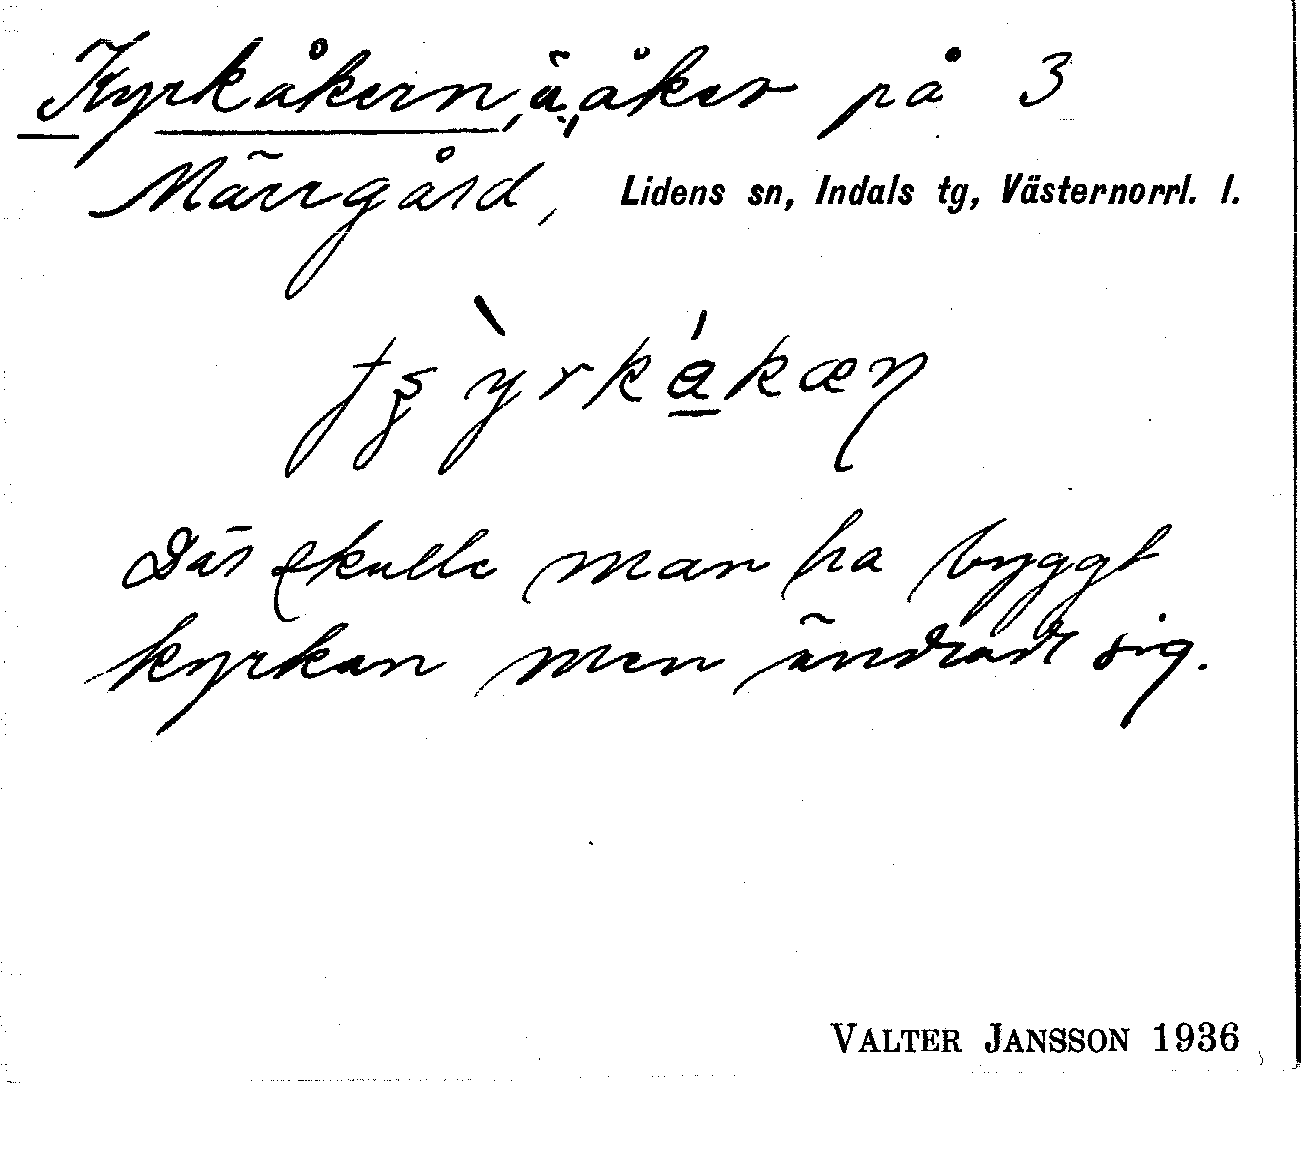 Kyrkåkern, ä, åker på 3
Märrgård, Lidens sn, Indals tg, Västernorrl. l.
tʂỳrkákæn
Där skulle man ha byggt
kyrkan men ändrat sig.
VALTER JANSSON 1936